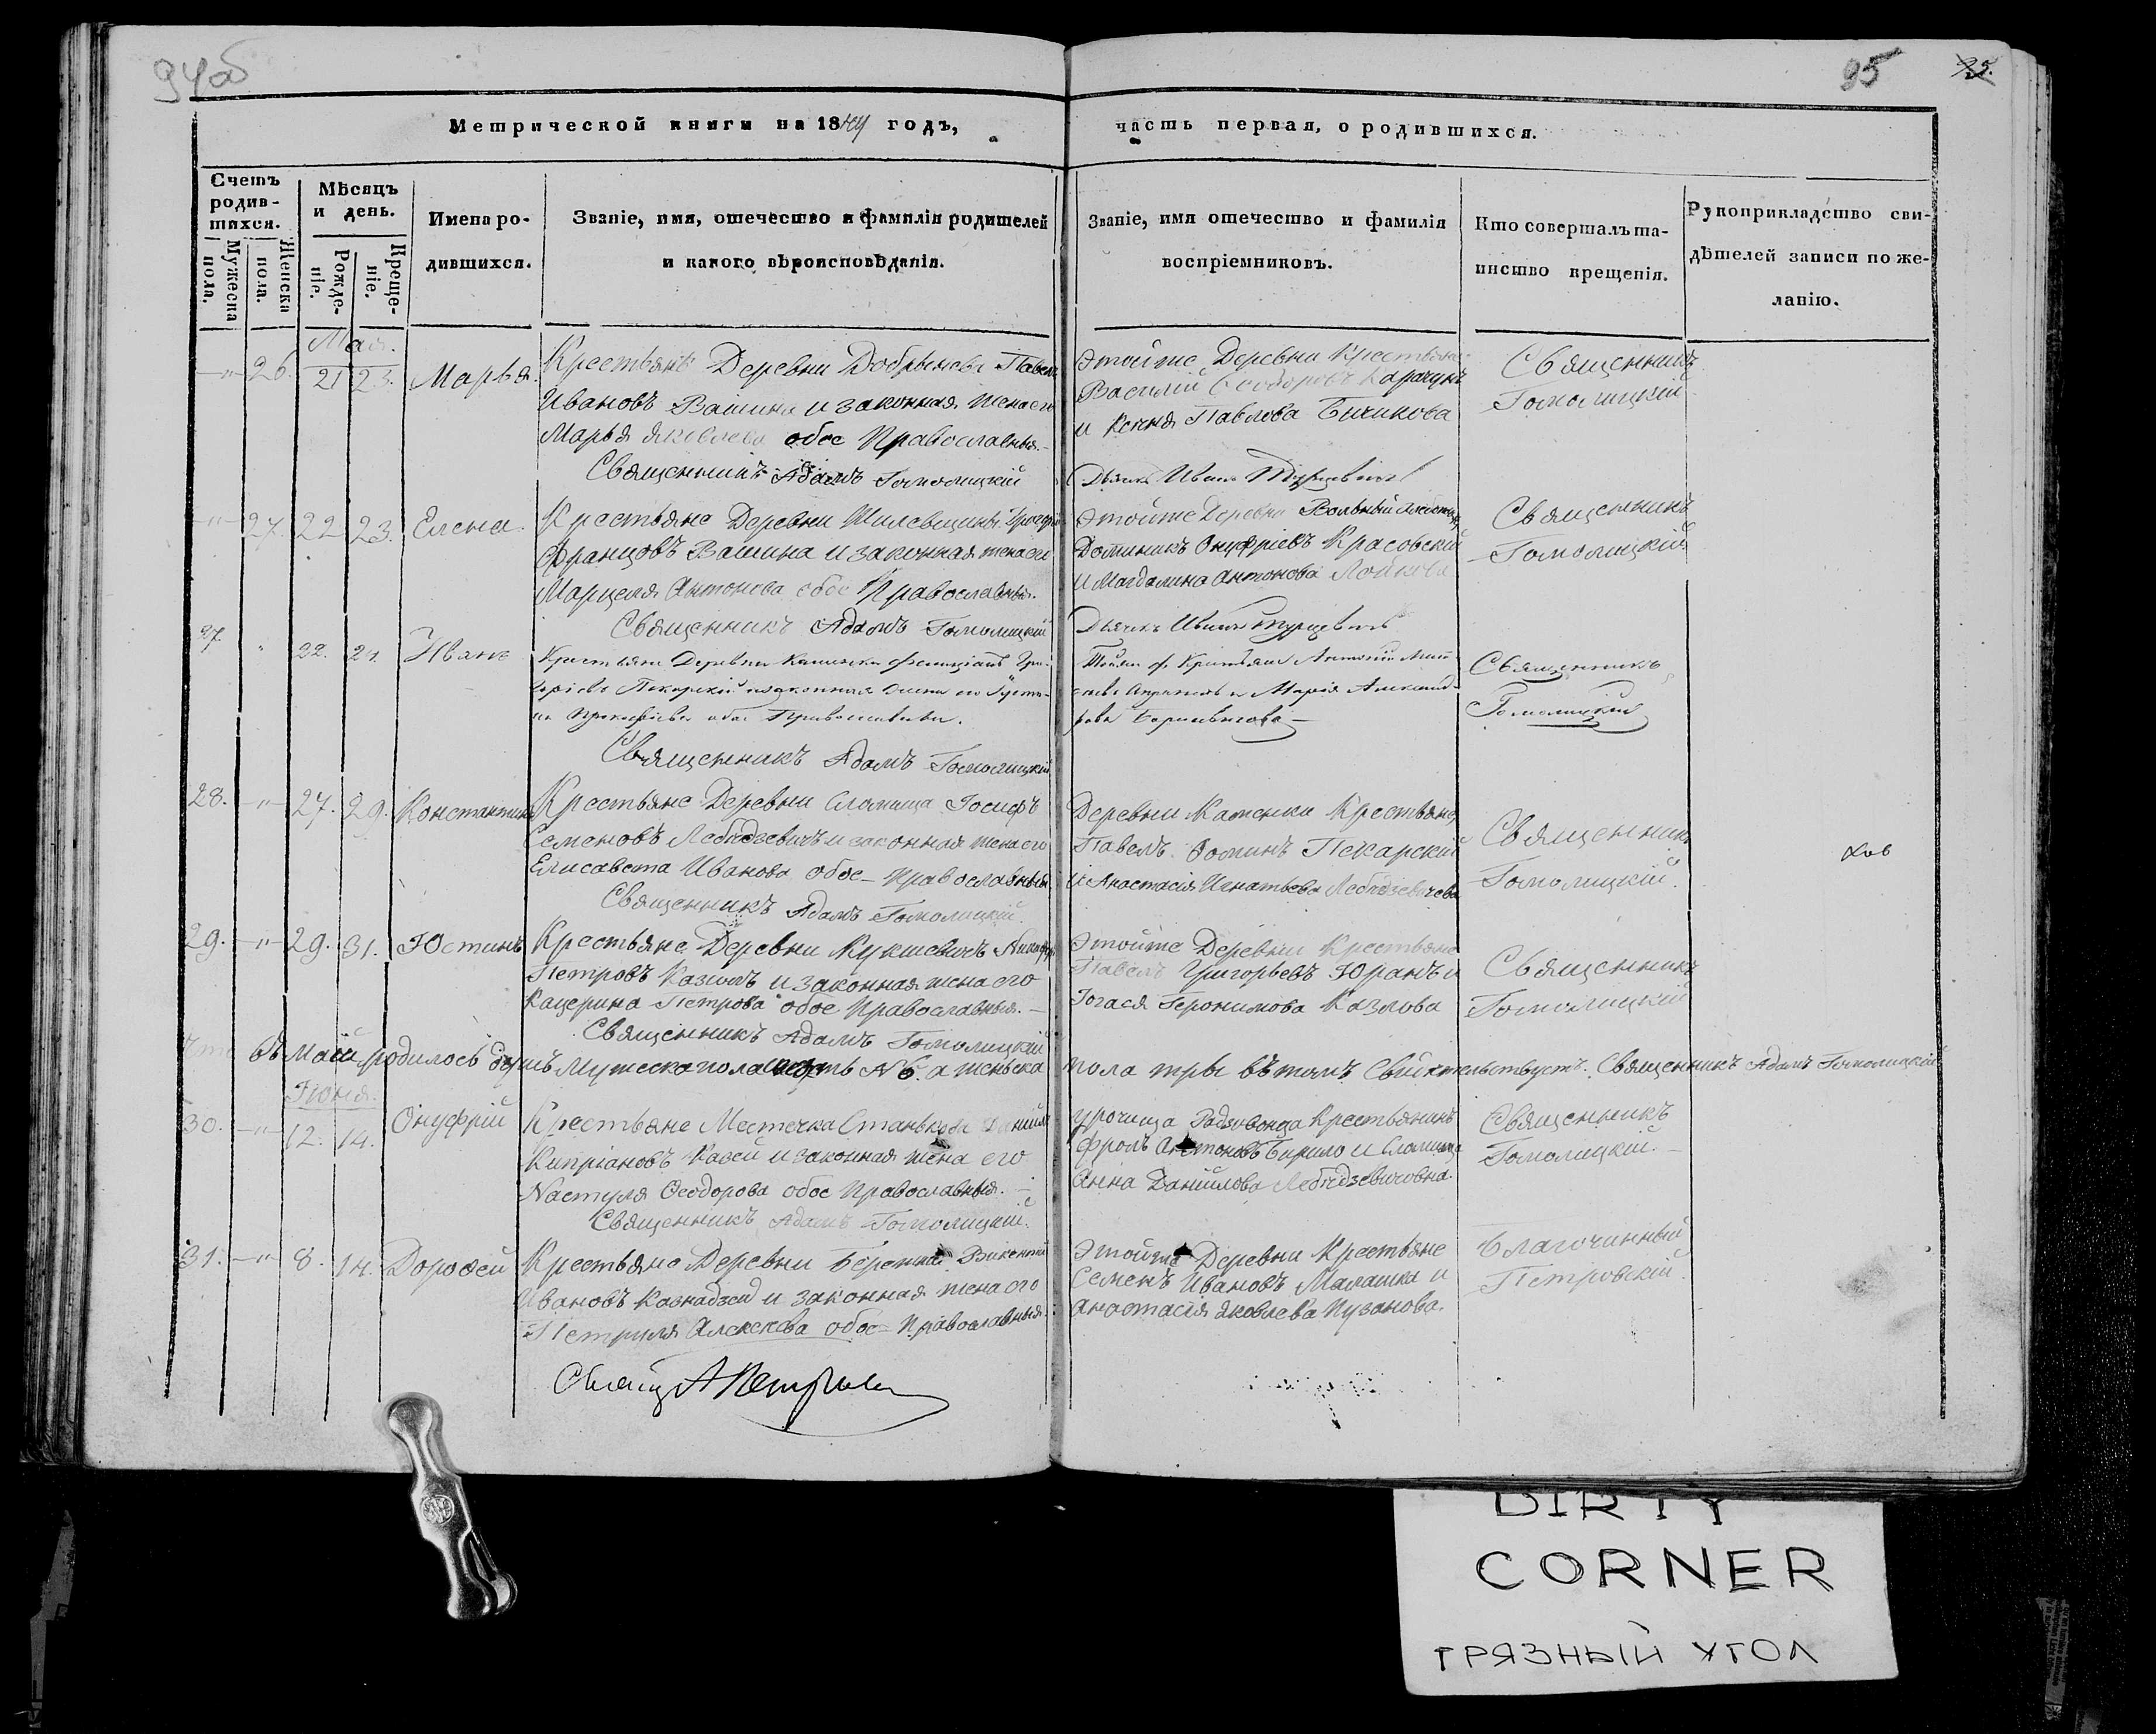 94об
95
95.
Метрической книги на 1844 годъ,
часть первая, о родившихся.
Счетъ родившихся.
Мужеска пола.
Женска пола.
Мѣсяцъ и день.
Рожденіе.
Крещеніе.
Имена родившихся.
Званіе, имя, отечество и фамилія родителей
и какого вѣроисповѣданія.
Званіе, имя отечество и фамилія
воспріемниковъ.
Кто совершалъ та-
инство крещенія.
Рукоприкладство сви-
дѣтелей записи по же-
ланію.
Мая.
26. 21 23. Марья.
Крестьяне Деревни Добринева Павелъ
Ивановъ Вашина и законная жена его
Марья Яковлева обое Православныя.
Священникъ Адамъ Гомолицкій
Этойже Деревни Крестьяне
Василій Ѳеодоровъ Карачунъ
и Ксенія Павлова Бичикова
Дьячекъ Иванъ
Священникъ
Гомолицкій
27. 22 23. Елена.
Крестьяне Деревни
Францовъ Вашина и законная жена его
Марцеля Антонова обое Православныя.
Священникъ Адамъ Гомолицкій
Этойже Деревни Вольный
Доминикъ Онуфріевъ Красовскій
и Магдалина Антонова
Дьячекъ Иванъ
Священникъ
Гомолицкій
27. 22. 24. Иванъ
Крестьяне Деревни Каменки Фелиціанъ Гри-
горіевъ Пекарскій и законная жена его Густи-
на Прокофіева обое Православныя.
Священникъ Адамъ Гомолицкій
Тойже д. Крестьяне Антоній
и Марія Александ-
рова
Священникъ
Гомолицкій
28. 27. 29. Константинъ
Крестьяне Деревни Сломища Іосифъ
Семеновъ Лебедзевичъ и законная жена его
Елисавета Иванова обое Православныя
Священникъ Адамъ Гомолицкій.
Деревни Каменки Крестьяне,
Павелъ Ѳоминъ Пекарскій
и Анастасія Игнатьева Лебедзевичева
Священникъ
Гомолицкій.
29. 29. 31. Юстинъ
Крестьяне Деревни Кукшевичъ
Петровъ Казимъ и законная жена его
Кацерина Петрова обое Православныя.
Священникъ Адамъ Гомолицкій
Этойже Деревни Крестьяне
Павелъ Григорьевъ Юранъ и
Іогася Геронимова Казлова
Священникъ
Гомолицкій
Что въ Маіи родилось душъ Мужеска пола шесть № 6. а женьска пола три въ томъ Свидѣтельствуетъ. Священникъ Адамъ Гомолицкій
Іюня.
30. 12. 14. Онуфрій
Крестьяне Местечка Станькова Даніилъ
Кипріановъ Казей и законная жена его
Настуля Ѳеодорова обое Православныя.
Священникъ Адамъ Гомолицкій.
урочища Крестьянинъ
Фролъ Антоновъ Бирило и Сломища
Анна Даніилова Лебедзевичовна.
Священникъ
Гомолицкій.
31. 8. 14. Дороѳей
Крестьяне Деревни Бережи Викентій
Ивановъ Казнадзей и законная жена его
Петруля Алексеева обое Православныя.
Этойже Деревни Крестьяне
Семенъ Ивановъ Малашка и
Анастасія Яковлева Пузанова.
Благочинный
Петровскій.
DIRTY
CORNER
ГРЯЗНЫЙ УГОЛ